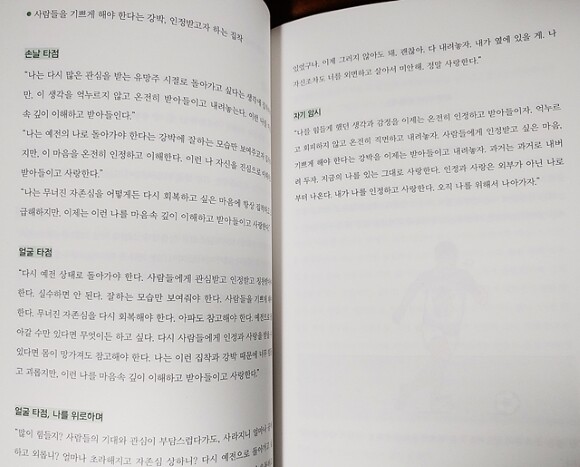 ● 사람들을 기쁘게 해야 한다는 강박, 인정받고자 하는 집착
손날 타점
"나는 다시 많은 관심을 받는 유망주 시절로 돌아가고 싶다는 생각에
만, 이 생각을 억누르지 않고 온전히 받아들이고 내려놓는다. 이런 나를
속 깊이 이해하고 받아들인다."
"나는 예전의 나로 돌아가야 한다는 강박에 잘하는 모습만 보여주고
지만, 이 마음을 온전히 인정하고 이해한다. 이런 나 자신을 진심으로
받아들이고 사랑한다."
"나는 무너진 자존심을 어떻게든 다시 회복하고 싶은 마음에 항상
급해하지만, 이제는 이런 나를 마음속 깊이 이해하고 받아들이고 사랑한다."
얼굴 타점
"다시 예전 상태로 돌아가야 한다. 사람들에게 관심받고 인정받고
한다. 실수하면 안 된다. 잘하는 모습만 보여줘야 한다. 사람들을 기쁘게
한다. 무너진 자존심을 다시 회복해야 한다. 아파도 참고해야 한다. 예전으로
아갈 수만 있다면 무엇이든 하고 싶다. 다시 사람들에게 인정과 사랑을
있다면 몸이 망가져도 참고해야 한다. 나는 이런 집착과 강박 때문에 너무
고 괴롭지만, 이런 나를 마음속 깊이 이해하고 받아들이고 사랑한다."
얼굴 타점, 나를 위로하며
"많이 힘들지? 사람들의 기대와 관심이 부담스럽다가도, 사라지니
고 외롭니? 얼마나 초라해지고 자존심 상하니? 다시 예전으로
있었구나. 이제 그러지 않아도 돼. 괜찮아. 다 내려놓자. 내가 옆에 있을 게. 나
자신조차도 너를 외면하고 살아서 미안해. 정말 사랑한다."
자기 암시
"나를 힘들게 했던 생각과 감정을 이제는 온전히 인정하고 받아들이자. 억누르
고 회피하지 않고 온전히 직면하고 내려놓자. 사람들에게 인정받고 싶은 마음,
기쁘게 해야 한다는 강박을 이제는 받아들이고 내려놓자. 과거는 과거로 내버
려 두자. 지금의 나를 있는 그대로 사랑한다. 인정과 사랑은 외부가 아닌 나로
부터 나온다. 내가 나를 인정하고 사랑한다. 오직 나를 위해서 나아가자."